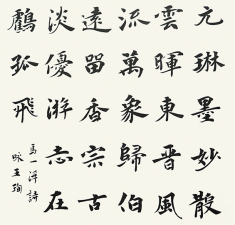 元琳墨妙散
雲暉東晋風
流萬象歸伯
遠留香宗古
淡優游志在
鶴孤飛
馬一浮詩
詠王珣